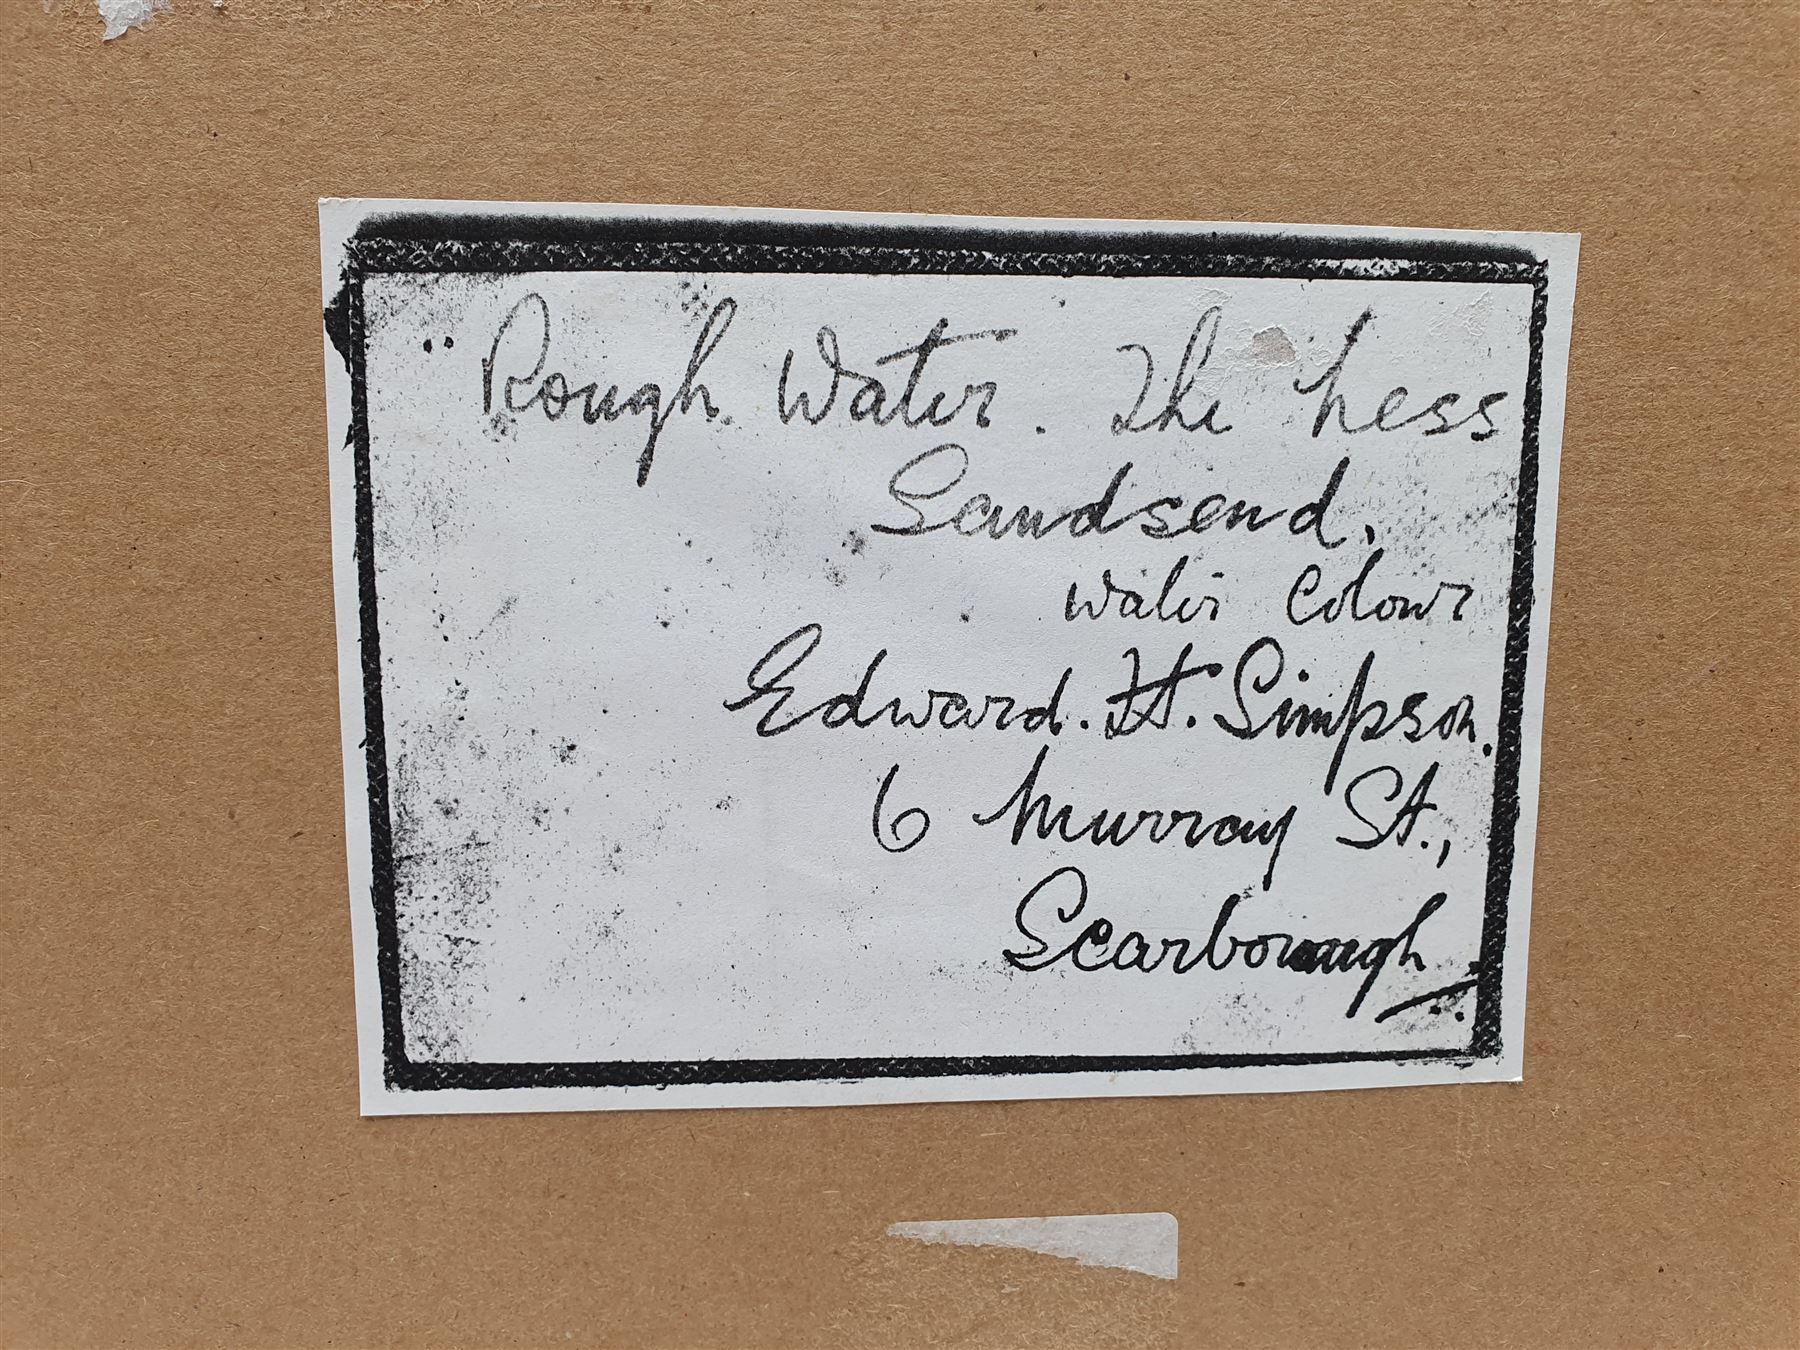 Rough Water. The Ness
Sandsend,
Water Colour
Edward. H. Simpson.
6 Murray St.,
Scarborough